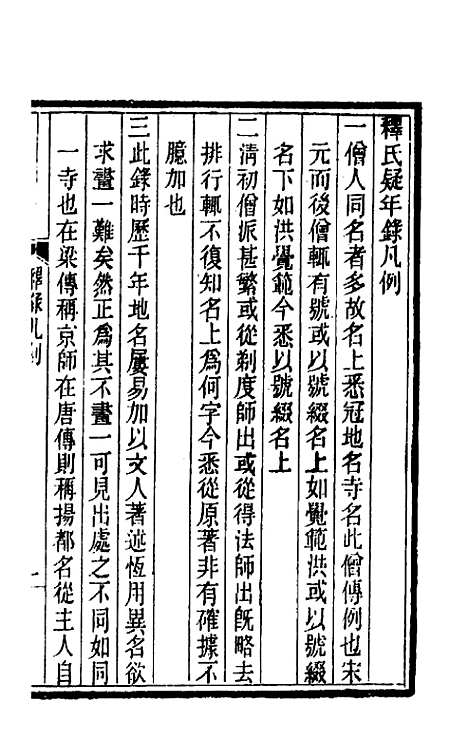 釋氏疑年錄凡例
一僧人同名者多故名上悉冠地名寺名此僧傳例也宋
元而後僧輒有號或以號綴名上如覺範洪或以號綴
名下如洪覺範今悉以號綴名上
二淸初僧派甚繁或從剃度師出或從得法師出旣略去
排行輒不復知名上爲何字今悉從原著非有確據不
臆加也
三此錄時歷千年地名屢易加以文人著述恆用異名欲
求畫一難矣然正爲其不畫一可見出處之不同如同
一寺也在梁傳稱京師在唐傳則稱揚都名從主人自
釋錄凡例
一